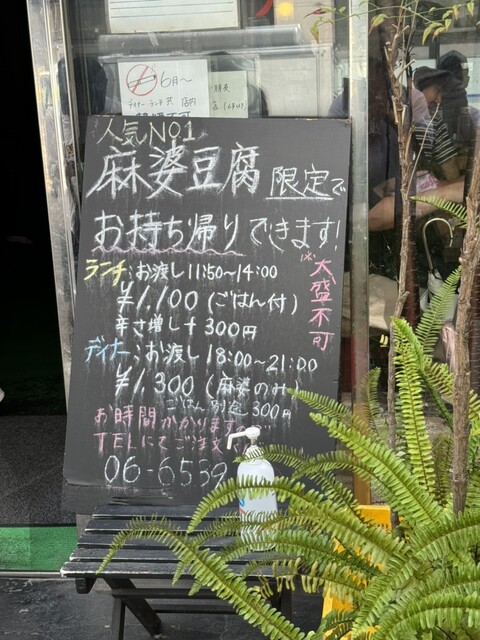 6月〜
ディナー ランチ 共 店内
人気NO1
麻婆豆腐 限定で
お持ち帰りできます!
ランチ:お渡し11:50〜14:00
¥1,100(ごはん付)
辛さ増し+300円
ディナー:お渡し18:00〜21:00
¥1,300(麻婆のみ)
ごはん別途300円
※大盛不可
お時間かかります
TELにてご注文
06-6539